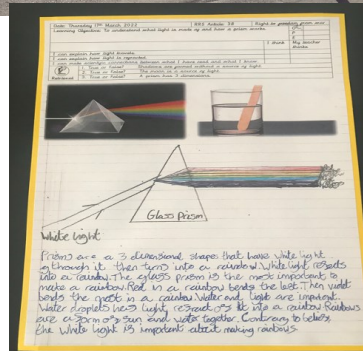 Date: Thursday 17th March 2022
RRS Article: 28
Learning Objective: To understand what light is made up and how a prism works.
I think
My teacher thinks
I can explain how light travels.
I can explain how light is refracted.
I can make scientific connections between what I have read and what I know.
Retrieval
1. True or False? Shadows are formed without a source of light.
2. True or False? The moon is a source of light.
3. True or False? A prism has 3 dimensions.
Glass Prism
White Light
Prisms are a 3 dimensional shapes that have white light
go through it then turns into a rainbow. White light
into a rainbow. The glass prism is the most important to
make a rainbow. Red in a rainbow bends the least. Then violet
bends the most in a rainbow. Water and light are important.
Water droplets light, it into a rainbow. Rainbows
are a form of sun and water together. Contrary to
the white light is important about making rainbows.